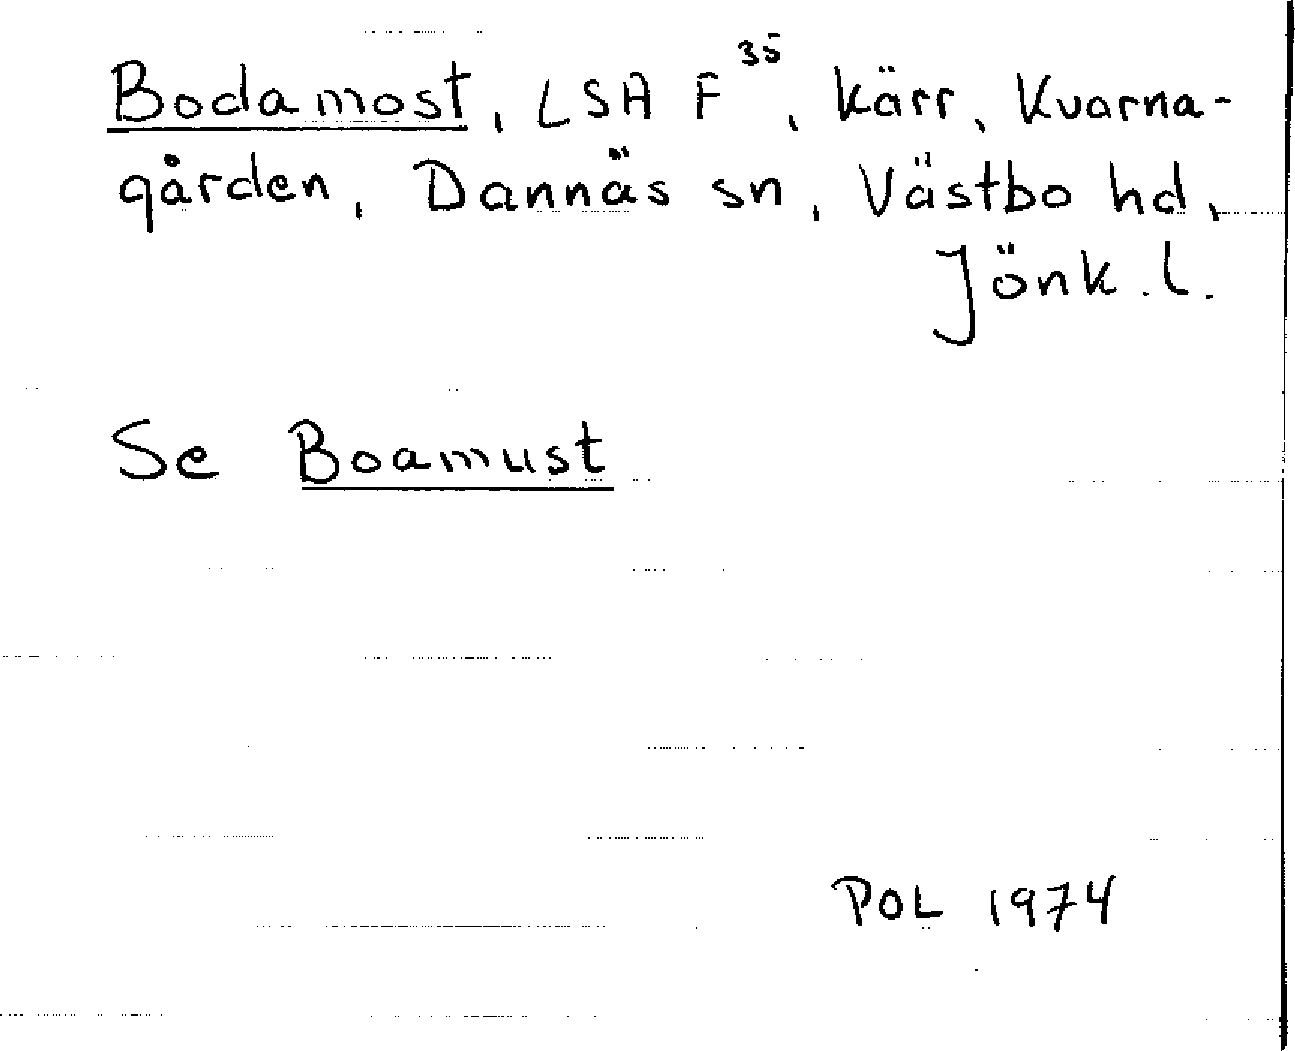 Bodamost, LSA F³⁵, kärr, Kvarna-
gården, Dannäs sn, Västbo hd,
Jönk. l.
Se Boamust
POL 1974